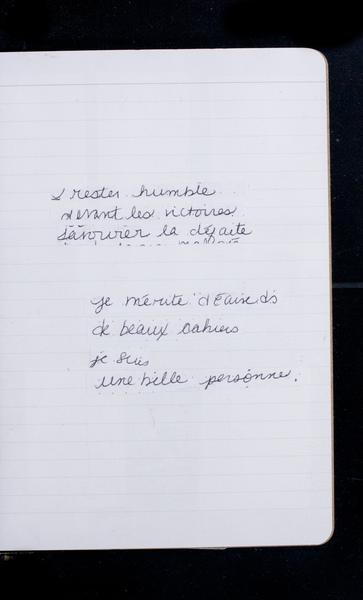 & rester humble
devant les victoires
savourer la défaite
je mérite d'écrire ds
de beaux cahiers
je suis
une belle personne.